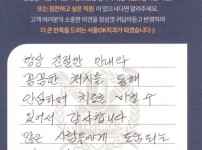 또는 칭찬하고 싶은 직원 이 있으시다면 알려주세요.
고객 여러분의 소중한 의견을 정성껏 귀담아듣고 반영하여
더 큰 만족을 드리는 서울OK치과가 되겠습니다 :)
항상 친절한 안내와
꼼꼼한 처치를 통해
안심하며 치료를 받을 수
있어서 감사합니다
많은 사람들에게